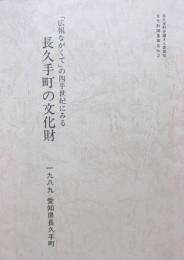 長久手町史編さん委員会
「広報ながくて」の四半世紀にみる
長久手町の文化財
一九八九 愛知県長久手町